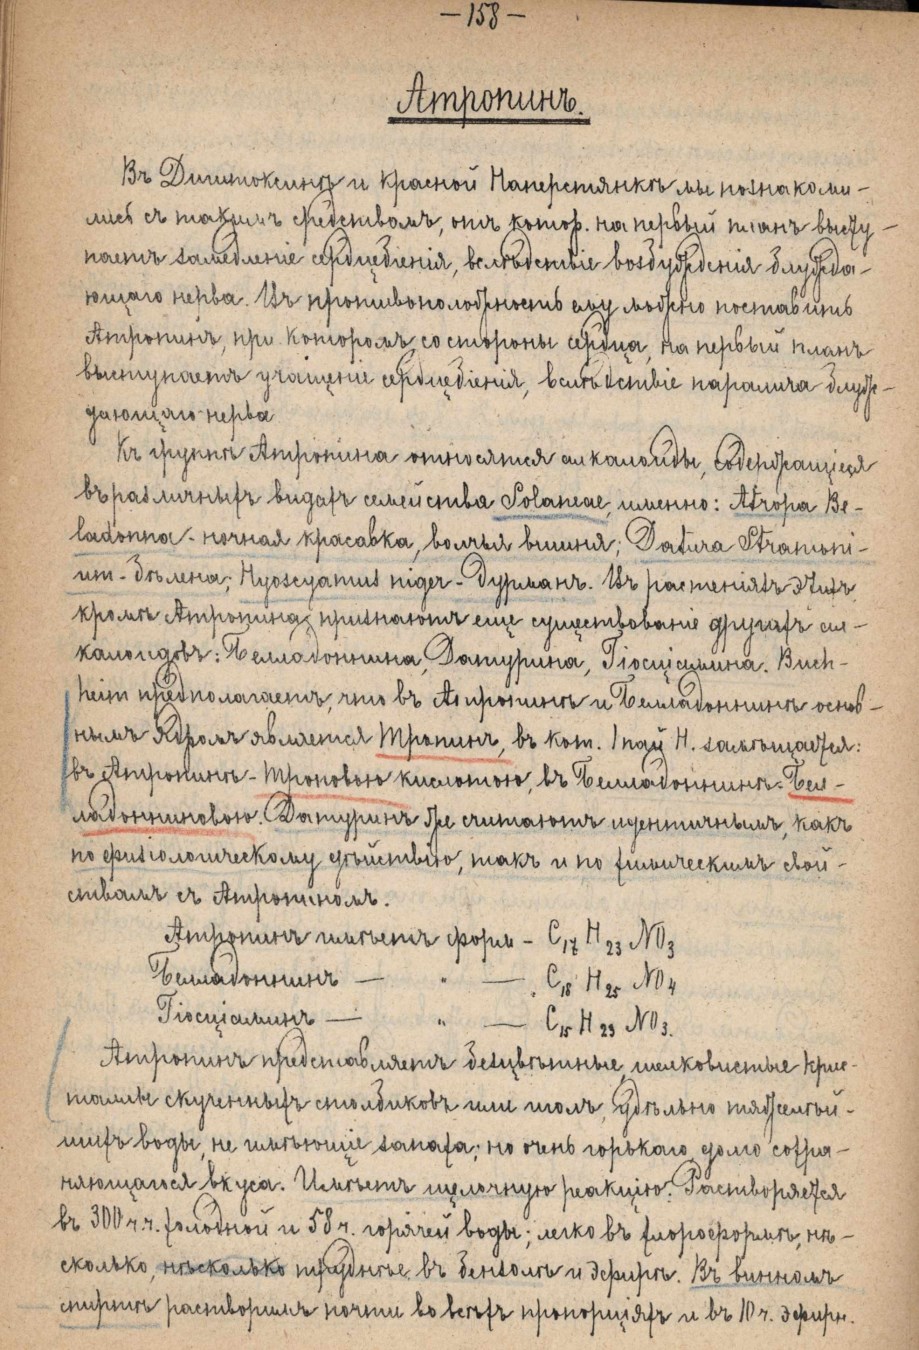 — 158 —
Атропинъ.
Въ Дигитоксинѣ и красной Наперстянкѣ мы познакоми-
лись съ такимъ средствомъ, отъ котор. на первый планъ высту-
паетъ замедленіе сердцебіенія, вслѣдствіе возбужденія блужда-
ющаго нерва. Въ противоположность ему можно поставить
Атропинъ, при которомъ со стороны сердца, на первый планъ
выступаетъ учащеніе сердцебіенія, вслѣдствіе паралича блуж-
дающаго нерва
Къ группѣ Атропина относятся алкалоиды, содержащіеся
въ различныхъ видахъ семейства Solaneae, именно: Atropa Be-
ladonna - ночная красавка, волчья вишня; Datura Stramoni-
um - бѣлена; Hyoscyamus niger - Дурманъ. Въ растеніяхъ этихъ
кромѣ Атропина, признаютъ еще существованіе другихъ ал-
калоидовъ: Белладоннина, Датурина, Гіосціамина. Buch-
heim предполагаетъ, что въ Атропинѣ и Белладоннинѣ основ-
нымъ ядромъ является Тропинъ, въ кот. 1 пай Н. замѣщается:
въ Атропинѣ - Троповою кислотою, въ Белладоннинѣ - Бел-
ладонниновою. Датуринъ же считаютъ идентичнымъ, какъ
по физіологическому дѣйствію, такъ и по химическимъ свой-
ствамъ съ Атропиномъ.
Атропинъ имѣетъ форм - C17 H23 NO3
Белладоннинъ — " — C18 H25 NO4
Гіосціаминъ — " — C15 H23 NO3.
Атропинъ представляетъ безцвѣтные, шелковистые крис-
таллы скученныхъ столбиковъ или иголъ, удѣльно тяжелѣй-
шихъ воды, не имѣющіе запаха; но очень горькаго, долго сохра-
няющагося вкуса. Имѣетъ щелочную реакцію. Растворяется
въ 300 ч.ч. холодной и 58 ч. горячей воды; легко въ хлороформѣ, нѣ-
сколько, нѣсколько труднѣе въ бензолѣ и эфирѣ. Въ винномъ
спиртѣ растворимъ почти во всѣхъ пропорціяхъ и въ 10 ч. эфирн.